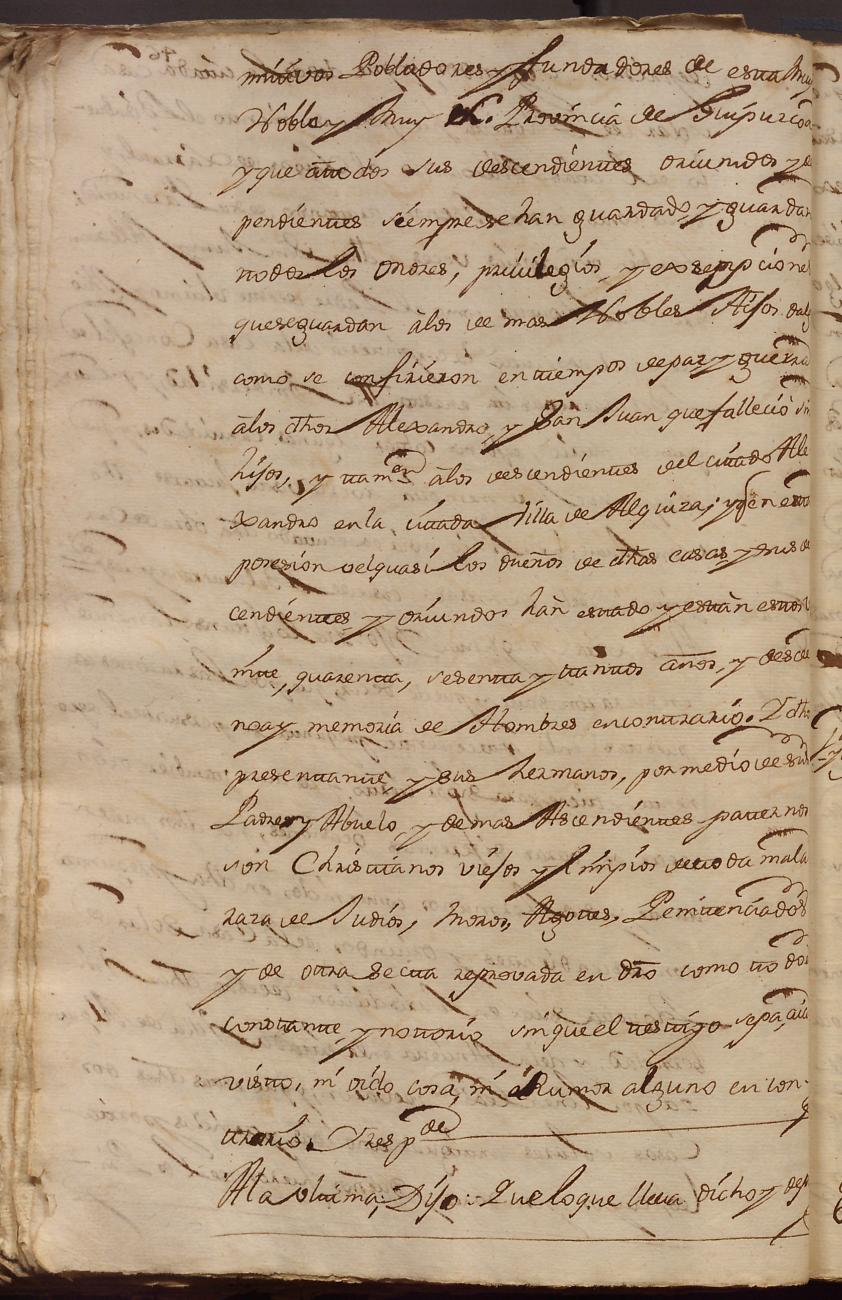 mitivos Pobladores y fundadores de esta Muy
Noble y Muy L. Provincia de Guipuzcoa
y que atodos sus descendientes oriundos y de
pendientes siempre se han guardado y guardan
todos los Onores, privilegios y exsempciones
que se guardan alos de mas Nobles Hijos dalg
como se confirieron en tiempos de paz y guerra
alos dhos Alexandro, y San Juan que fallecio sin
hijos, y tamen alos descendientes del citado Ale
xandro en la citada Villa de Alquiza; y en esta
posesion velquasi los dueños de dhas casas y sus des
cendientes y oriundos han estado y estan
mte, quarenta, sesenta y tantos años, y desde
no ay memoria de Hombres encontrario. Y dho
presentante y sus hermanos, por medio de su
Padre y Abuelo, y demas Ascendientes paternos
son Christianos viejos y limpios de toda mala
raza de Judios, Moros, Agotes, Penitenciados
y de otra secta reprovada en dro como todo
constante, y nottorio sin que el testigo sepa, aia
visto, ni oido cosa, ni Rumor alguno en con-
trario. Y resp de
Ala ultima, Dijo: Que lo que lleva dicho y dep